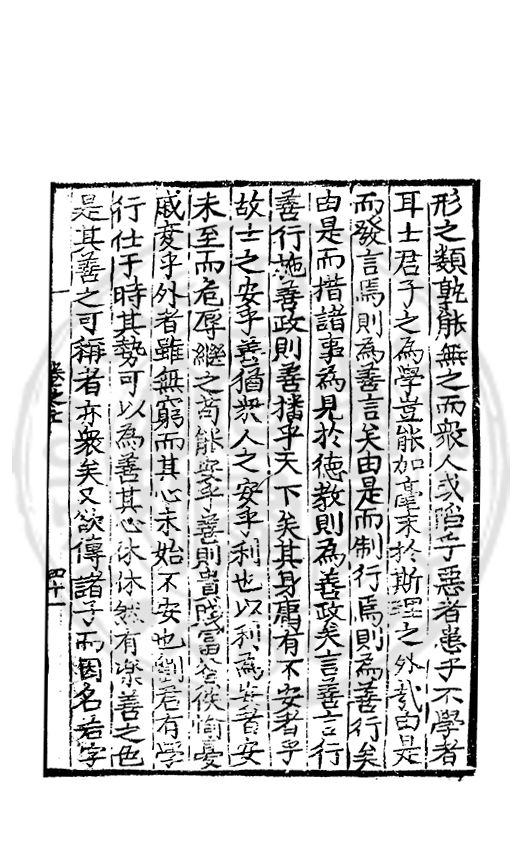 形之類孰能無之而衆人或陷乎惡者患乎不學者
耳士君子之為學豈能加毫末於斯理之外哉由是
而發言焉則為善言矣由是而制行焉則為善行矣
由是而措諸事為見於德教則為善政矣言善言行
善行施善政則善播乎天下矣其身庸有不安者乎
故士之安乎善猶衆人之安乎利也以利為安者安
未至而危辱継之苟能安乎善則貴賤富貧佚愉憂
戚変乎外者雖無窮而其心未始不安也劉君有學
行仕于時其勢可以為善其心沐沐然有楽善之色
是其善之可稱者亦衆矣又欲傳諸子而因名若字
卷之七
四十一